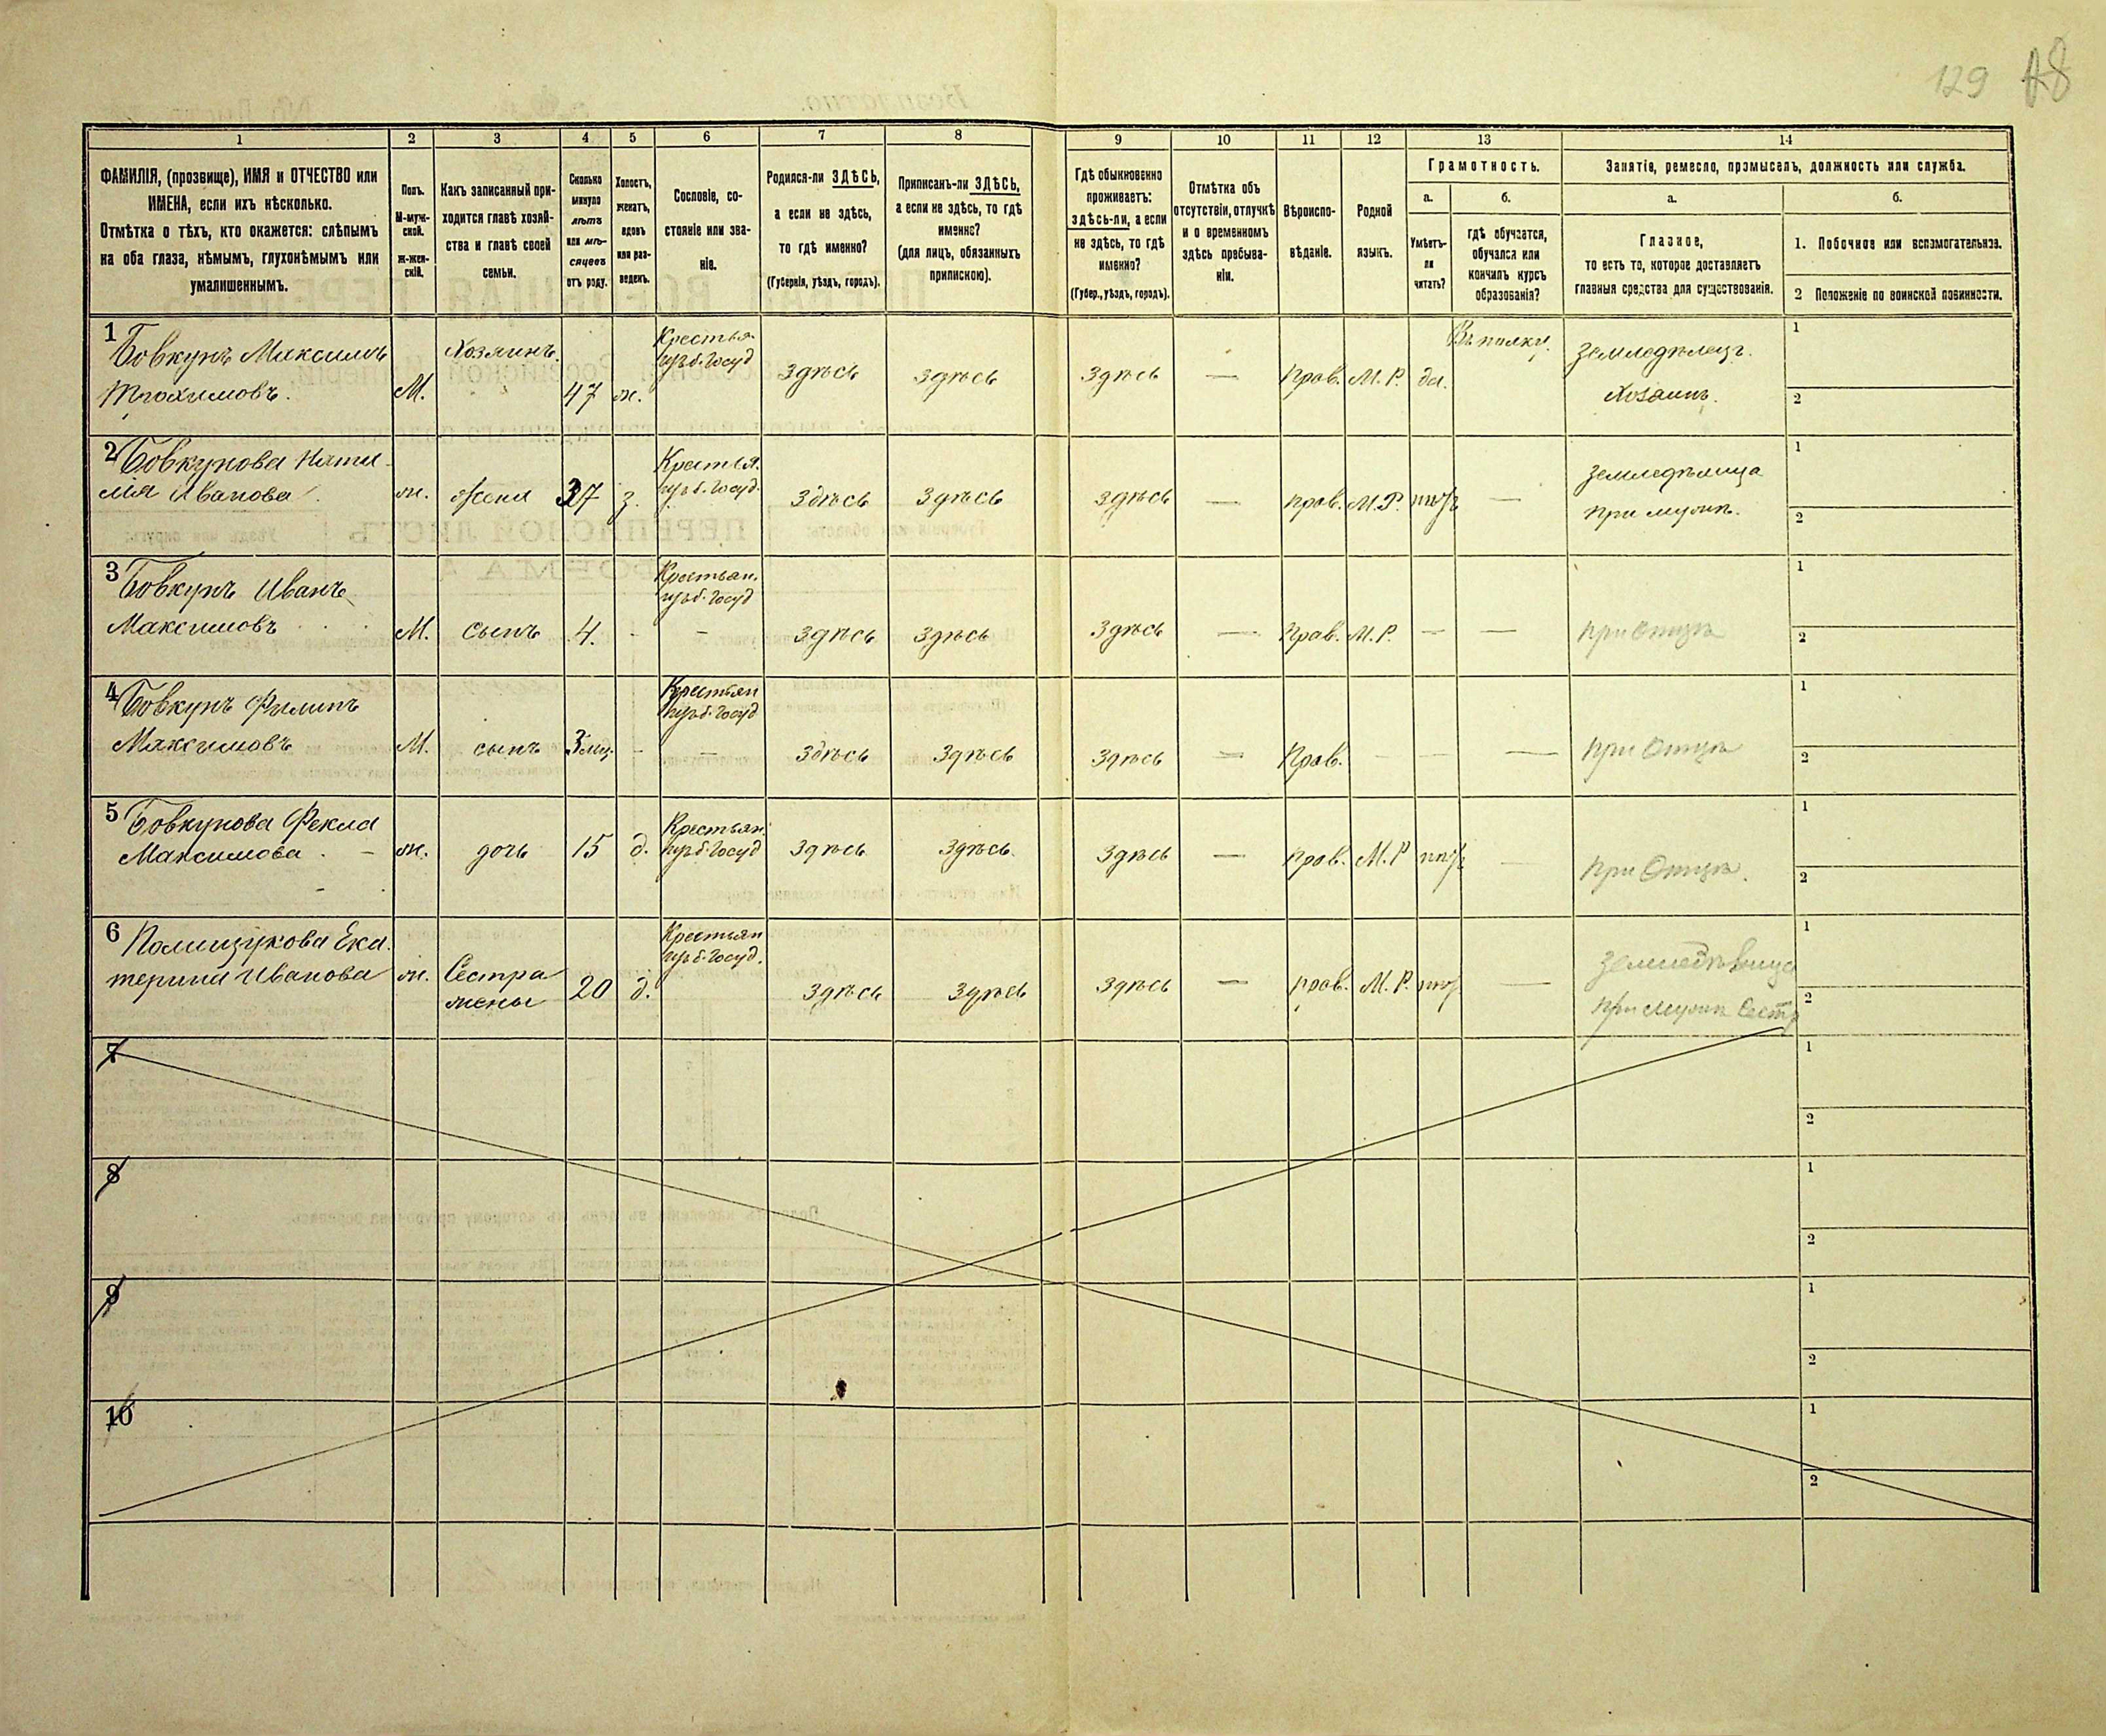 129 A8
1 2 3 4 5 6 7 8 9 10 11 12 13 14
ФАМИЛІЯ, (прозвище), ИМЯ и ОТЧЕСТВО или
ИМЕНА, если ихъ нѣсколько.
Отмѣтка о тѣхъ, кто окажется: слѣпымъ
на оба глаза, нѣмымъ, глухонѣмымъ или
умалишеннымъ.
Полъ.
М-муж-
ской.
ж-жен-
скій.
Какъ записанный при-
ходится главѣ хозяй-
ства и главѣ своей
семьи.
Сколько
минуло
лѣтъ
или мѣ-
сяцевъ
отъ роду.
Холостъ,
женатъ,
вдовъ
или раз-
веденъ.
Сословіе, со-
стояніе или зва-
ніе.
Родился-ли ЗДѢСЬ,
а если не здѣсь,
то гдѣ именно?
(Губернія, уѣздъ, городъ).
Приписанъ-ли ЗДѢСЬ,
а если не здѣсь, то гдѣ
именно?
(для лицъ, обязанныхъ
припискою).
Гдѣ обыкновенно
проживаетъ:
здѣсь-ли, а если
не здѣсь, то гдѣ
именно?
(Губер., уѣздъ, городъ).
Отмѣтка объ
отсутствіи, отлучкѣ
и о временномъ
здѣсь пребыва-
ніи.
Вѣроиспо-
вѣданіе.
Родной
языкъ.
Грамотность.
а.
Умѣетъ-
ли
читать?
б.
гдѣ обучается,
обучался или
кончилъ курсъ
образованія?
Занятіе, ремесло, промыселъ, должность или служба.
а.
Главное,
то есть то, которое доставляетъ
главныя средства для существованія.
б.
1. Побочное или вспомогательное.
2 Положеніе по воинской повинности.
1 Бовкунъ Максимъ Хозяинъ. Крестья- Въ полку. Земледѣлецъ. 1
Трохимовъ. М. 47 ж. изъ б. Госуд здѣсь здѣсь здѣсь — Прав. М. Р. да. Хозяинъ. 2
2 Бовкунова Ната- Крестья. Земледѣлица 1
лія Иванова ж. жена 37 з. изъ б. Госуд. здѣсь здѣсь здѣсь — прав. М. Р. нѣтъ — при мужѣ. 2
3 Бовкунъ Иванъ Крестьян. 1
изъ б. Госуд
Максимовъ М. сынъ 4. - – здѣсь здѣсь здѣсь — Прав. М. Р. — — при Отцѣ 2
4 Бовкунъ Филипъ Крестьян 1
изъ б. Госуд
Максимовъ М. сынъ 3 мц. - – здѣсь здѣсь здѣсь — Прав. - — — при Отцѣ 2
5 Бовкунова Фекла Крестьян. 1
Максимова ж. дочь 15 д. изъ б. Госуд здѣсь здѣсь здѣсь — прав. М. Р нѣтъ — при Отцѣ. 2
6 Полищукова Ека- Крестьян Земледѣлица 1
изъ б. Госуд.
терина Иванова ж. Сестра
жены 20 д. здѣсь здѣсь здѣсь — прав. М. Р. нѣтъ — при мужѣ Сестр 2
7 1
2
8 1
2
9 1
2
10 1
2